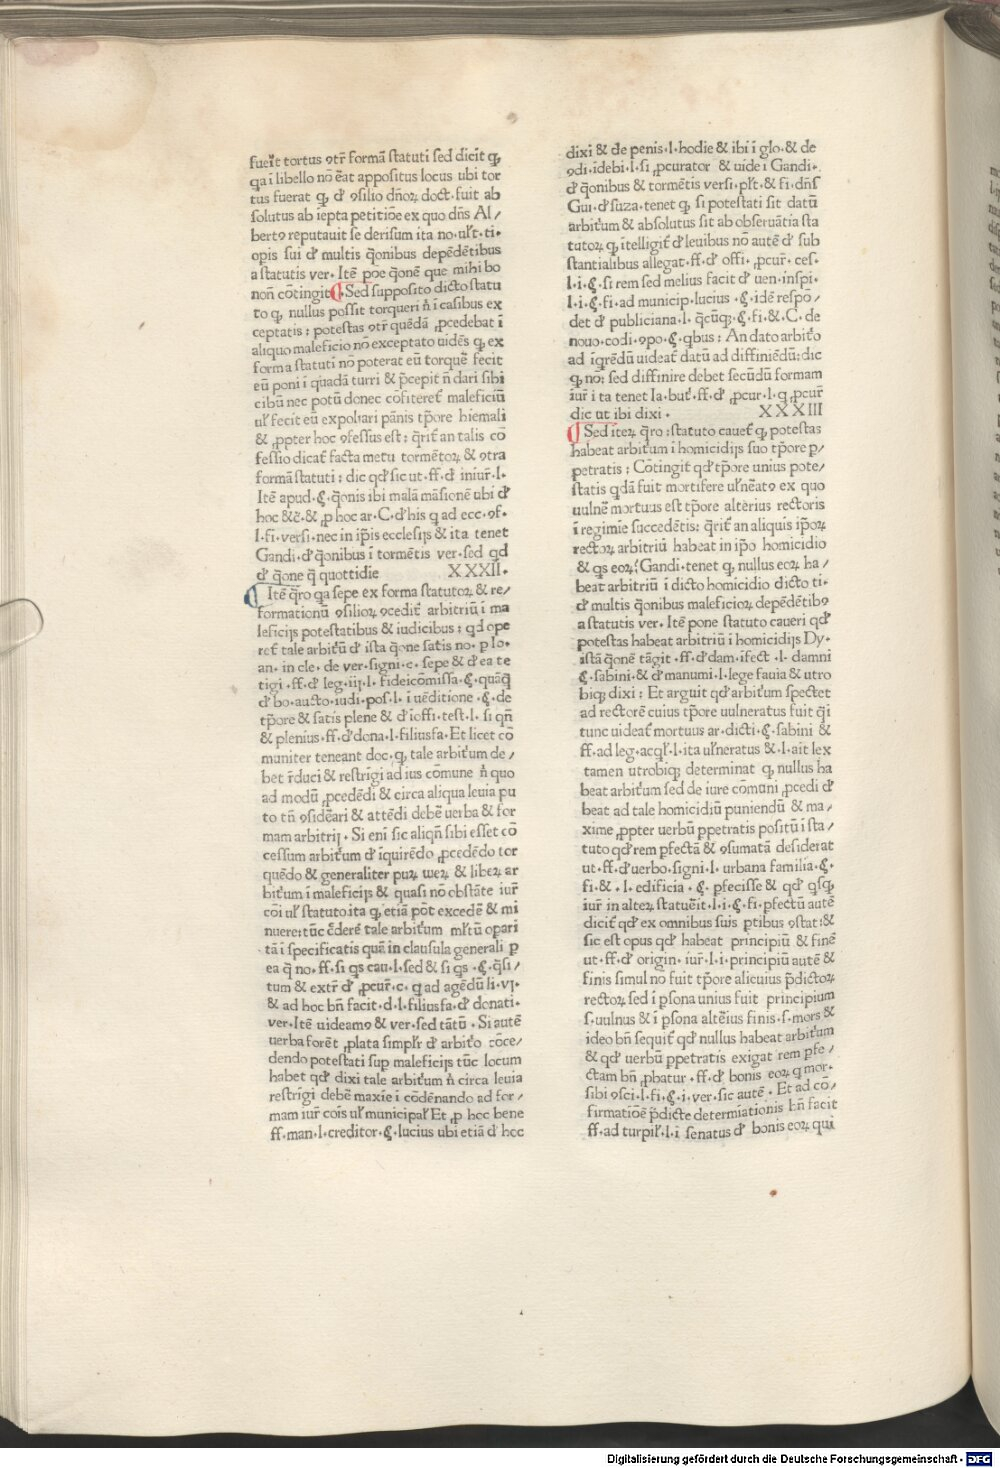 fuerit tortus ɔtr̄ formā ſtatuti ſed dicit̄ ꝙ
qa i libello nō erat appoſitus locus ubi tor
tus fuerat ꝙ đ ɔſilio dn̄oꝝ doct· fuit ab
ſolutus ab iepta petitiōe ex quo dn̄s Al/
bertꝰ reputauit ſe deriſum ita no· ulr̄t· ti·
opis ſui đ multis q̄onibus depēdētibus
a ſtatutis ver· Itē poe q̄onē que mihi bo
non̄ cōtingit· Sed ſuppoſito dicto ſtatu
to ꝙ nullus poſſit torqueri n̄ i caſibus ex
ceptatis: poteſtas ɔtr̄ quēdā ꝓcedebat ī
aliquo maleficio nō exceptato uidēs ꝙ ex
forma ſtatuti nō poterat eū torquē fecit
eū poni i quadā turri & p̄cepit n̄ dari ſibi
cibū nec potū donec cōfiteret̄ maleficiū
ul̄ fecit eū expoliari pānis tp̄ore hiemali
& ꝓpter hoc ɔfeſſus eſt: q̄rit̄ an talis cō
feſſio dicat̄ facta metu tormētoꝝ & ɔtra
formā ſtatuti: dic qđ ſic ut· ff· đ iniur̄· l·
Itē apud· §· q̄onis ibi malā māſionē ubi đ
hoc &c̄· & ꝓ hoc ar· C· đ his q ad ecc· ɔf·
l· fi· verſi· nec in ip̄is eccleſijs & ita tenet
Gandi· đ q̄onibus ī tormētis ver· ſed qđ
đ q̄one q̄ quottidie XXXII·
Itē q̄ro qa ſepe ex forma ſtatutoꝝ & re/
formationū ɔſilioꝝ ɔcedit̄ arbitriū i ma
leficijs poteſtatibus & iudicibus: qđ ope
ret̄ tale arbitriū đ iſta q̄one ſatis no· p Io·
an· in cle· de ver· ſigni· c· ſepe & đ ea te
tigi· ff· đ leg· iij· l· fideicōmiſſa· §· quāꝙ
đ bo· aucto· iudi· poſ· l· i uēditione· §· de
tp̄ore & ſatis plene & đ ioffi· teſt· l· ſi qn̄
& plenius· ff· đ dona· l· filiuſfa· Et licet cō
muniter teneant doc· ꝙ tale arbitrium de/
bet r̄duci & reſtrīgi ad ius cōmune n̄ quo
ad modū ꝓcedēdi & circa aliqua leuia pu
to tn̄ ɔſiderari & attēdi debē uerba & for
mam arbitrij· Si eni ſic aliqn̄ ſibi eſſet cō
ceſſum arbitrium đ iquirēdo ꝓcedēdo tor
quēdo & generaliter puꝝ meꝝ & libeꝝ ar
bitrium i maleficijs & quaſi nō obſtāte iur̄
cōi ul̄ ſtatuto ita ꝙ etiā pōt excedē & mi
nuere: tūc c̄derē tale arbitrium ml̄tū opari
tā i ſpecificatis quā in clauſula generali p
ea q̄ no· ff· ſi qs cau· l· ſed & ſi qs· §· q̄ſi/
tum & extr̄ đ ꝓcur̄· c· q ad agēdū li· vj·
& ad hoc bn̄ facit· d· l· filiuſfa· đ donati·
ver· Itē uideamꝰ & ver· ſed tātū· Si autē
uerba forēt ꝓlata ſimplr̄ đ arbitrio cōce/
dendo poteſtati ſup maleficijs tūc locum
habet qđ dixi tale arbitrium n̄ circa leuia
reſtrīgi debē maxie i cōdēnando ad for/
mam iur̄ cōis ul̄ municipal̄ Et ꝓ hoc bene
ff· man· l· creditor· §· lucius ubi etiā đ hoc
dixi & de penis· l· hodie & ibi i glo· & de
ɔdi· īdebi· l· ſi ꝓcurator & uide i Gandi·
đ q̄onibus & tormētis verſi· pr̄t· & fi· dn̄s
Gui· đ ſuza· tenet ꝙ ſi poteſtati ſit datū
arbitrium & abſolutus ſit ab obſeruātia ſta
tutoꝝ ꝙ itelligit̄ đ leuibus nō autē đ ſub
ſtantialibus allegat· ff· đ offi· ꝓcur̄· ceſ·
l· i· §· ſi rem ſed melius facit đ uen· inſpi·
l· i· §· fi· ad municip· lucius· §· idē reſpō/
det đ publiciana· l· q̄cūqꝫ· §· fi· & C· de
nouo· codi· ɔpo· §· qbus: An dato arbitrio
ad īgrēdū uideat̄ datū ad diffiniēdū: dic
ꝙ no: ſed diffinire debet ſecūdū formam
iur̄ i ta tenet Ia· but̄· ff· đ ꝓcur· l· q ꝓcur̄
dic ut ibi dixi· XXXIII
Sed iteꝝ q̄ro: ſtatuto cauet̄ ꝙ poteſtas
habeat arbitrium i homicidijs ſuo tp̄ore p/
petratis: Cōtingit qđ tp̄ore unius pote/
ſtatis qdā fuit mortifere ul̄neatꝰ ex quo
uulnē mortuus eſt tp̄ore alterius rectoris
i regimie ſuccedētis: q̄rit̄ an aliquis ip̄oꝝ
rectoꝝ arbitriū habeat in ip̄o homicidio
& qs eoꝝ: Gandi· tenet ꝙ nullus eoꝝ ha/
beat arbitriū i dicto homicidio dicto ti·
đ multis q̄onibus maleficioꝝ depēdētibꝰ
a ſtatutis ver· Itē pone ſtatuto caueri qđ
poteſtas habeat arbitriū i homicidijs Dy·
iſtā q̄onē tāgit· ff· đ dam· ifect· l· damni
§· ſabini· & đ manumi· l· lege fauia & utro
biqꝫ dixi: Et arguit qđ arbitrium ſpectet
ad rectorē cuius tp̄ore uulneratus fuit q̄i
tunc uideat̄ mortuus ar· dicti· §· ſabini &
ff· ad leg· acql̄· l· ita ul̄neratus & l· ait lex
tamen utrobiqꝫ determinat ꝙ nullus ha
beat arbitrium ſed de iure cōmuni ꝓcedi đ
beat ad tale homicidiū puniendū & ma/
xime ꝓpter uerbū ppetratis poſitū i ſta/
tuto qđ rem pfectā & ɔſumatā deſiderat
ut· ff· đ uerbo· ſigni· l· urbana familia· §·
fi· & · l· edificia· §· pfeciſſe & qđ qſꝙ
iur̄ in alteꝝ ſtatuerit· l· i· §· fi· pfectū autē
dicit̄ qđ ex omnibus ſuis ptibus ɔſtat: &
ſic eſt opus qđ habeat principiū & finē
ut· ff· đ origin· iur̄· l· i· principiū autē &
finis ſimul no fuit tp̄ore alicuius p̄dictoꝝ
rectoꝝ ſed i pſona unius fuit principium
ſ· uulnus & i pſona alterius finis· ſ· mors &
ideo bn̄ ſequit̄ qđ nullus habeat arbitrium
& qđ uerbū ppetratis exigat rem pfe/
ctam bn̄ ꝓbatur· ff· đ bonis eoꝝ q mor·
ſibi ɔſci· l· fi· §· i· ver· ſic autē· Et ad cō/
firmationē p̄dicte determiationis bn̄ facit
ff· ad turpil̄· l· i ſenatus đ bonis eoꝝ qui
Digitalisierung gefördert durch die Deutsche Forschungsgemeinschaft - DFG